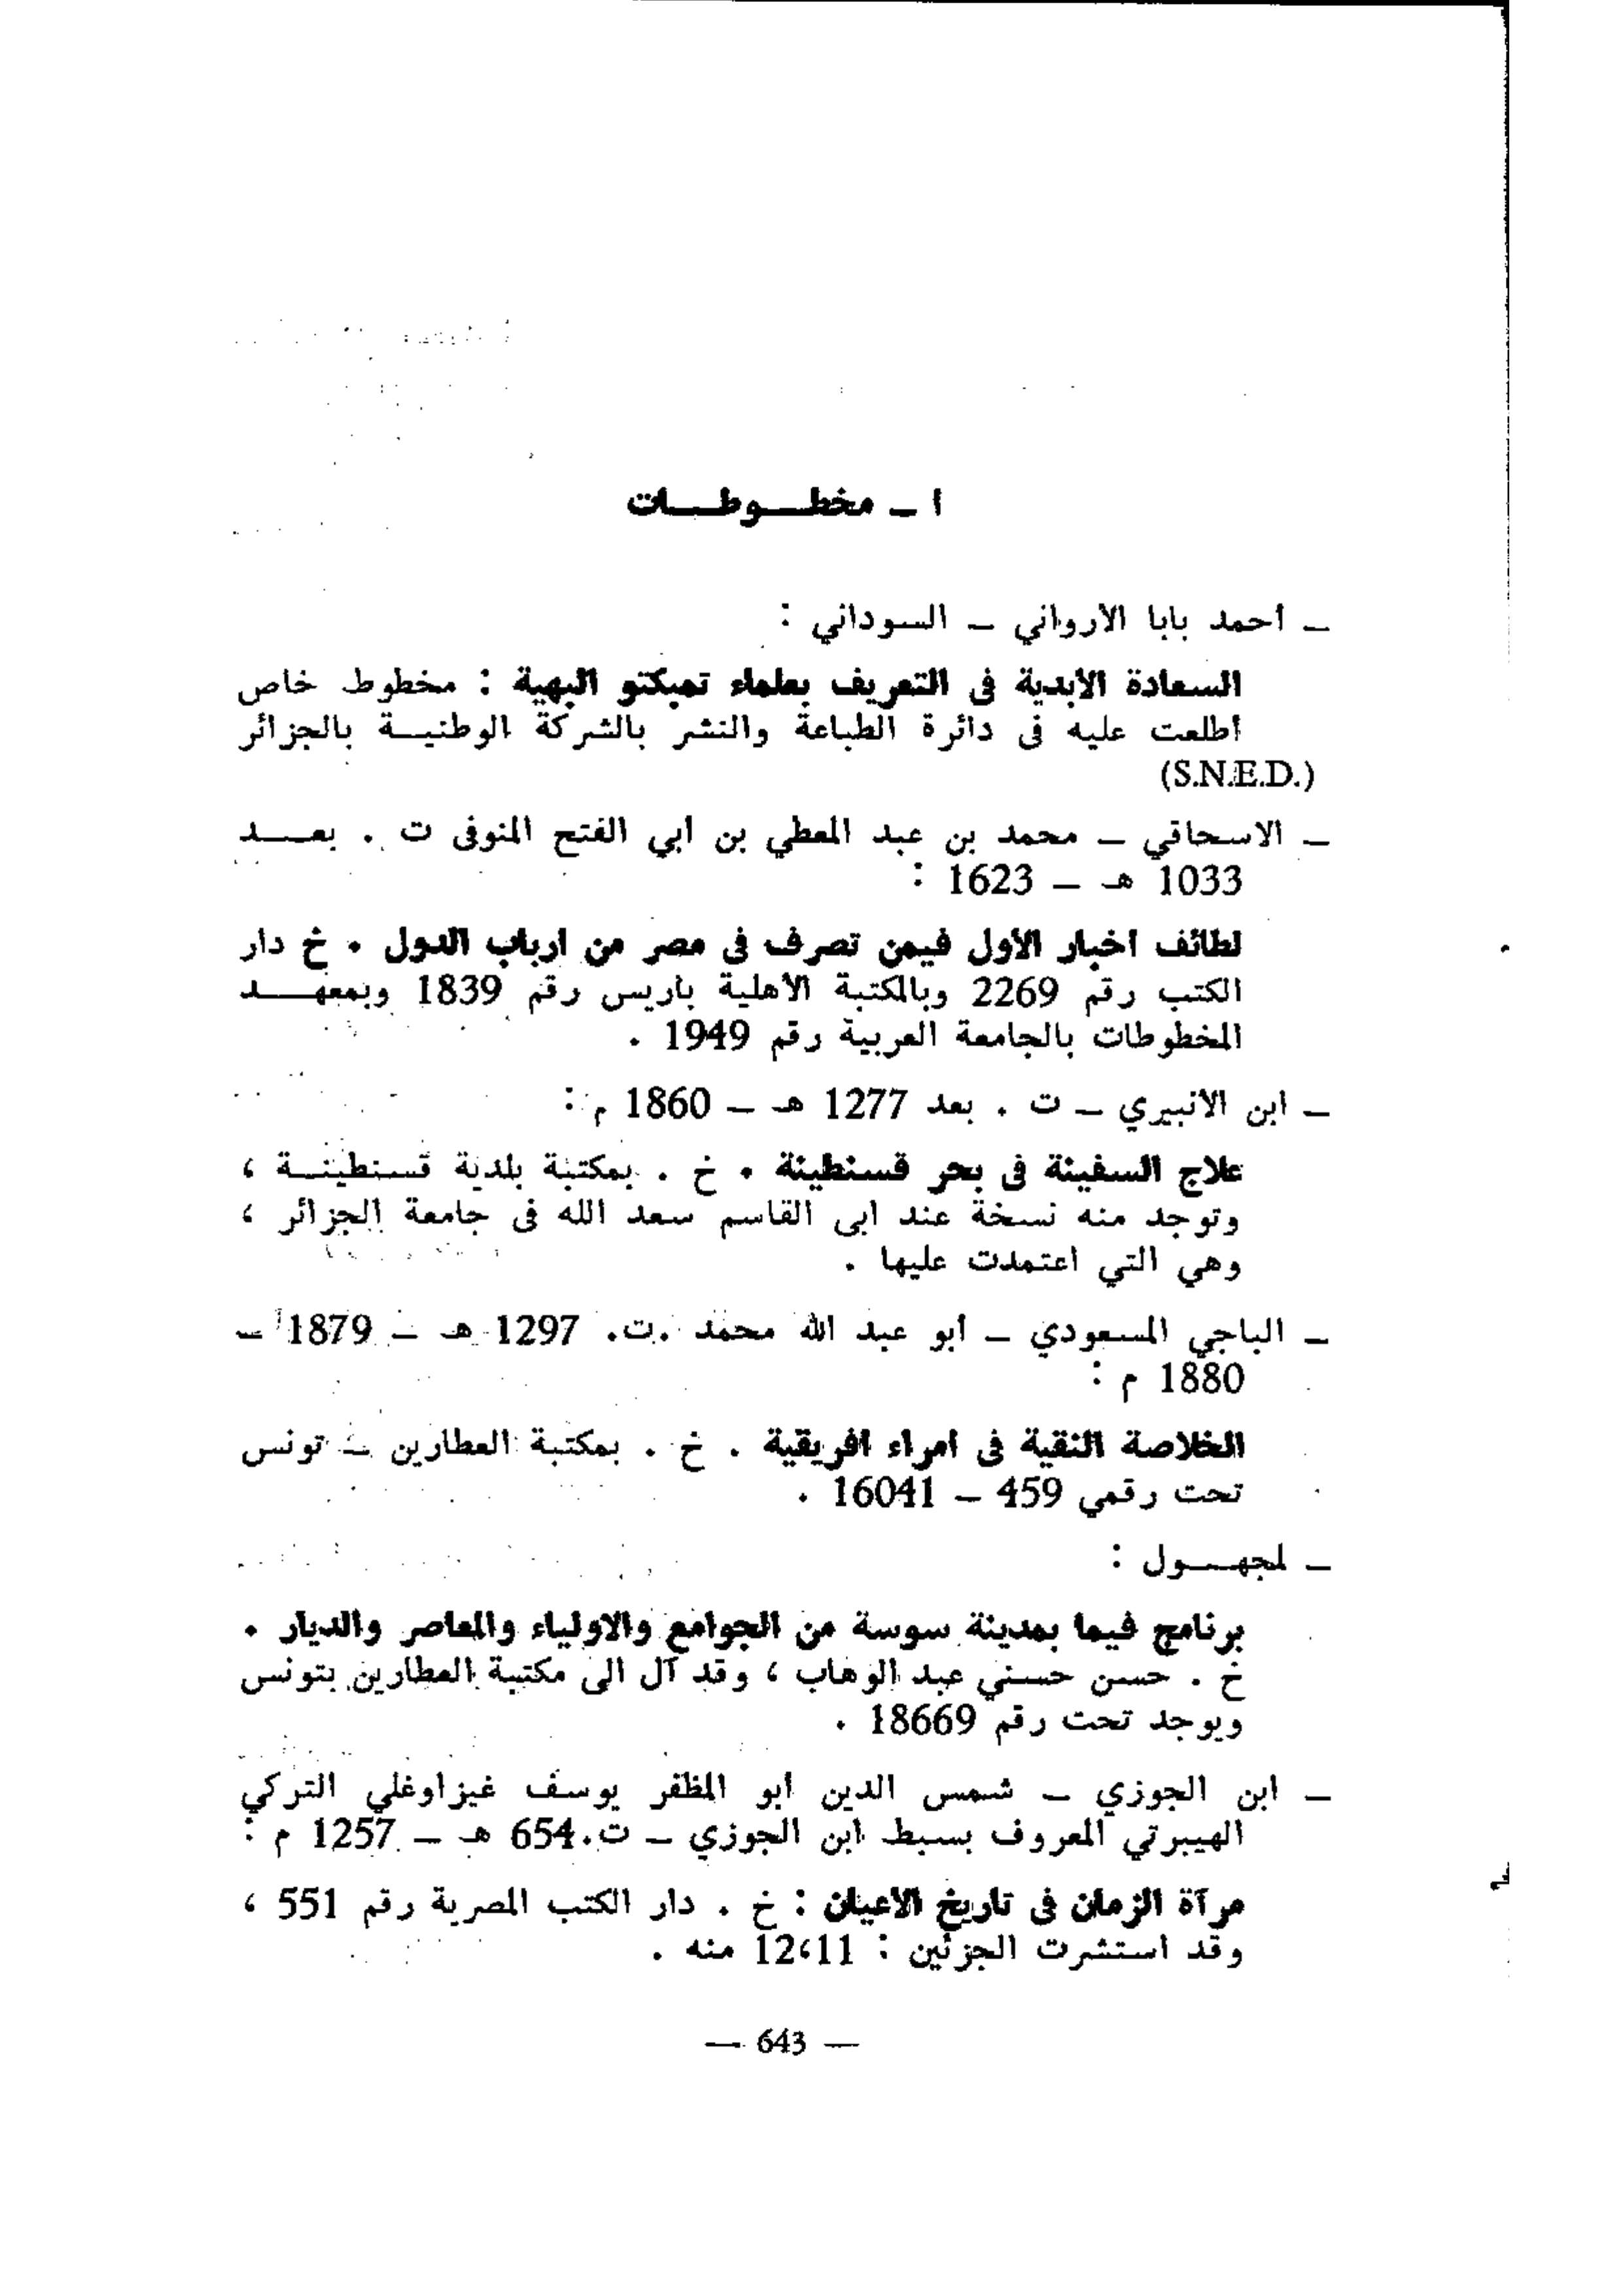 ا ــ مخطـــوطـــات
ــ أحمد بابا الارواني ــ السوداني :
السعادة الابدية فى التعريف بعلماء تمبكتو البهية : مخطوط خاص
اطلعت عليه فى دائرة الطباعة والنشر بالشركة الوطنيــة بالجزائر
(S.N.E.D.)
ــ الاسحاقي ــ محمد بن عبد المعطي بن ابي الفتح المنوفى ت . بعـــد
1033 هـ ــ 1623 :
لطائف اخبار الأول فيمن تصرف فى مصر من ارباب الدول . خ دار
الكتب رقم 2269 وبالمكتبة الاهلية باريس رقم 1839 وبمعهـــد
المخطوطات بالجامعة العربية رقم 1949 .
ــ ابن الانبيري ــ ت . بعد 1277 هـ ــ 1860 م :
علاج السفينة فى بحر قسنطينة . خ . بمكتبة بلدية قسنطينــة ،
وتوجد منه نسخة عند ابى القاسم سعد الله فى جامعة الجزائر ،
وهي التي اعتمدت عليها .
ــ الباجي المسعودي ــ أبو عبد الله محمد .ت. 1297 هـ ــ 1879 ــ
1880 م :
الخلاصة النقية فى امراء افريقية . خ . بمكتبة العطارين ــ تونس
تحت رقمي 459 ــ 16041 .
ــ لمجهـــول :
برنامج فيما بمدينة سوسة من الجوامع والاولياء والمعاصر والديار .
خ . حسن حسني عبد الوهاب ، وقد آل الى مكتبة العطارين بتونس
ويوجد تحت رقم 18669 .
ــ ابن الجوزي ــ شمس الدين ابو المظفر يوسف غيزاوغلي التركي
الهيبرتي المعروف بسبط ابن الجوزي ــ ت.654 هـ ــ 1257 م :
مرآة الزمان فى تاريخ الاعيان : خ . دار الكتب المصرية رقم 551 ،
وقد استشرت الجزئين : 11،12 منه .
— 643 —